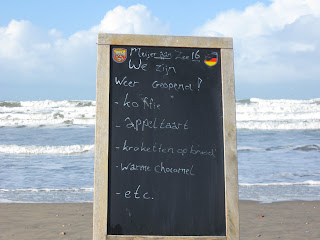 Meijer aan Zee 16
We zijn
Weer Geopend!
- koffie
- appeltaart
- kroketten op brood
- warme chocomel
- etc.